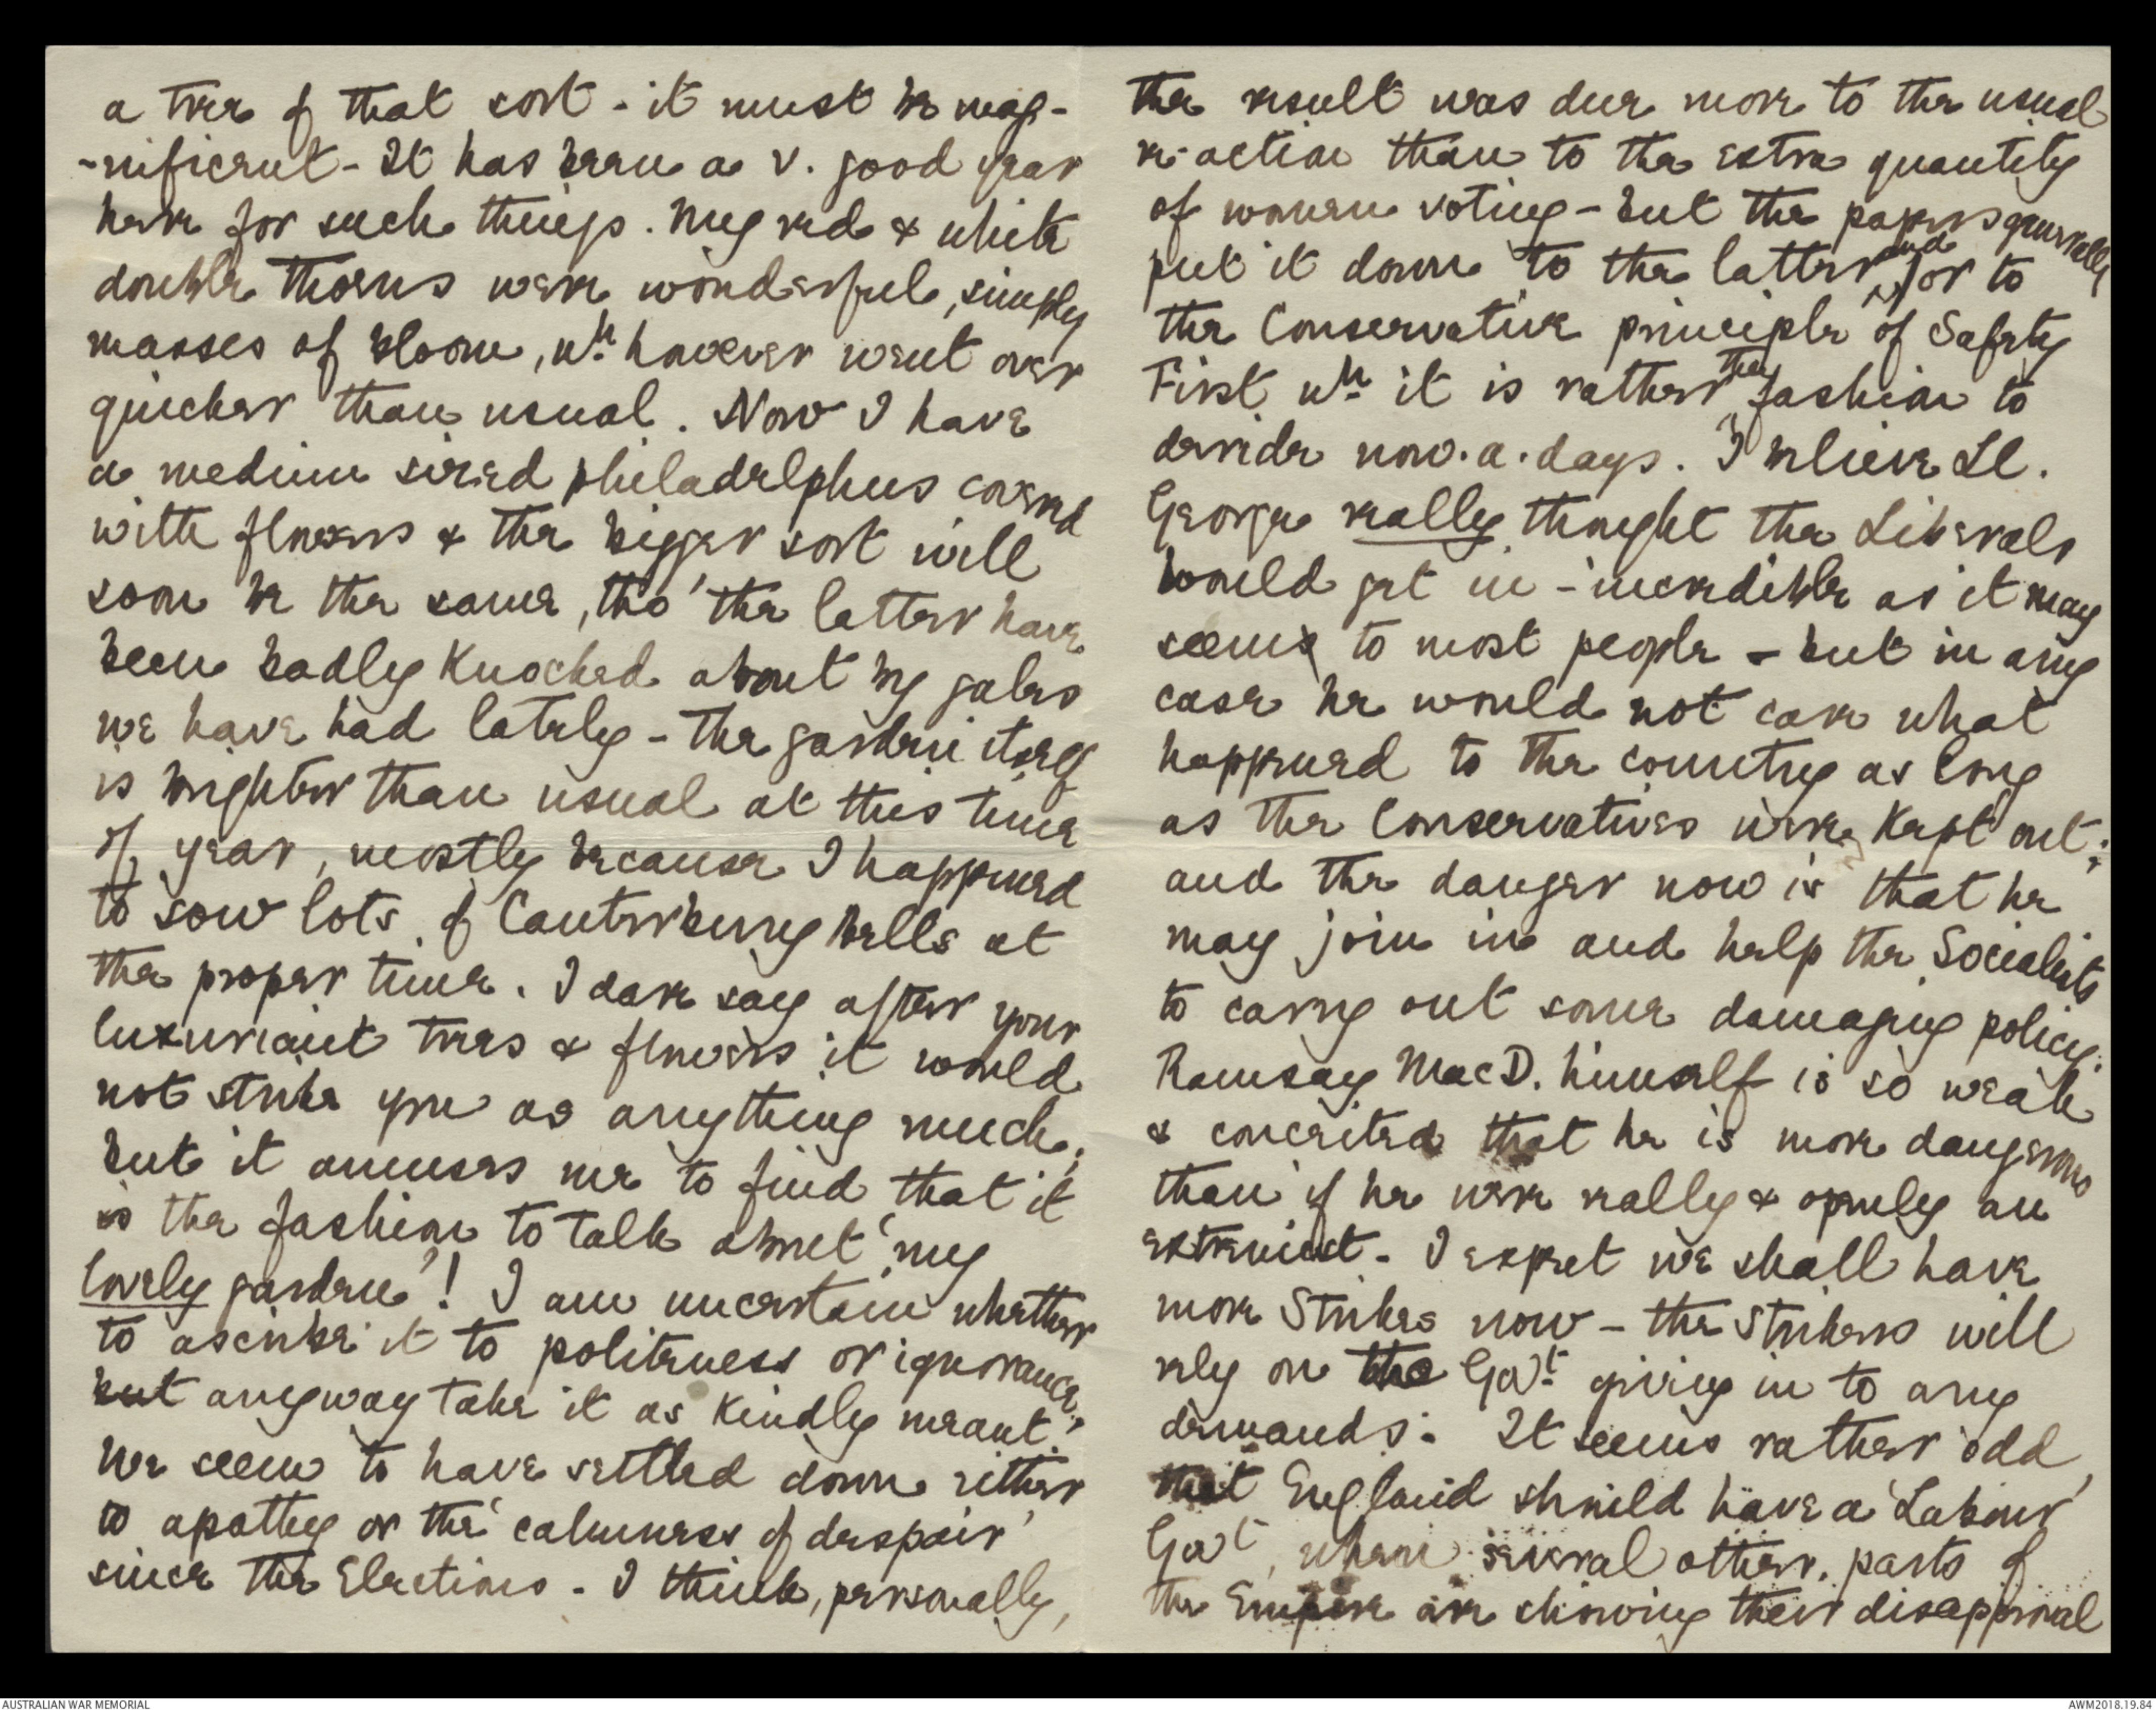 a tree of that sort - it must be mag-
-nificent - It has been a v. good year
here for such things. My red & white
double thorns were wonderful, simply
masses of bloom, wh. however went over
quicker than usual. Now I have
a medium sized philadelphus covered
with flowers & the bigger sort will
soon be the same, tho' the latter have
been badly knocked about by gales
we have had lately - the garden itself
is brighter than usual at this time
of year, mostly because I happened
to sow lots of Canterbury bells at
the proper time. I dare say after your
luxuriant trees & flowers it would
not strike you as anything much,
but it amuses me to find that it
is the fashion to talk about 'my
lovely garden'! I am uncertain whether
to ascribe it to politeness or ignorance,
but anyway take it as kindly meant!
We seem to have settled down either
to apathy or the 'calmness of despair'
since the Elections - I think, personally,
the result was due more to the usual
re-action than to the extra quantity
of women voting - but the papers generally
put it down to the latter and/or to
the Conservative principle of Safety
First wh. it is rather the fashion to
deride now.a.days. I believe Ll.
George really thought the Liberals
would get in - incredible as it may
seem to most people - but in any
case he would not care what
happened to the country as long
as the Conservatives were kept out;
and the danger now is that he
may join in and help the Socialists
to carry out some damaging policy.
Ramsay MacD. himself is so weak
& conceited that he is more dangerous
than if he were really & openly an
extremist - I expect we shall have
more Strikes now - the Strikers will
rely on the Govt. giving in to any
demands. It seems rather odd
that England should have a 'Labour'
Govt, when several other parts of
the Empire are showing their disapproval
AUSTRALIAN WAR MEMORIAL
AWM2018.19.84